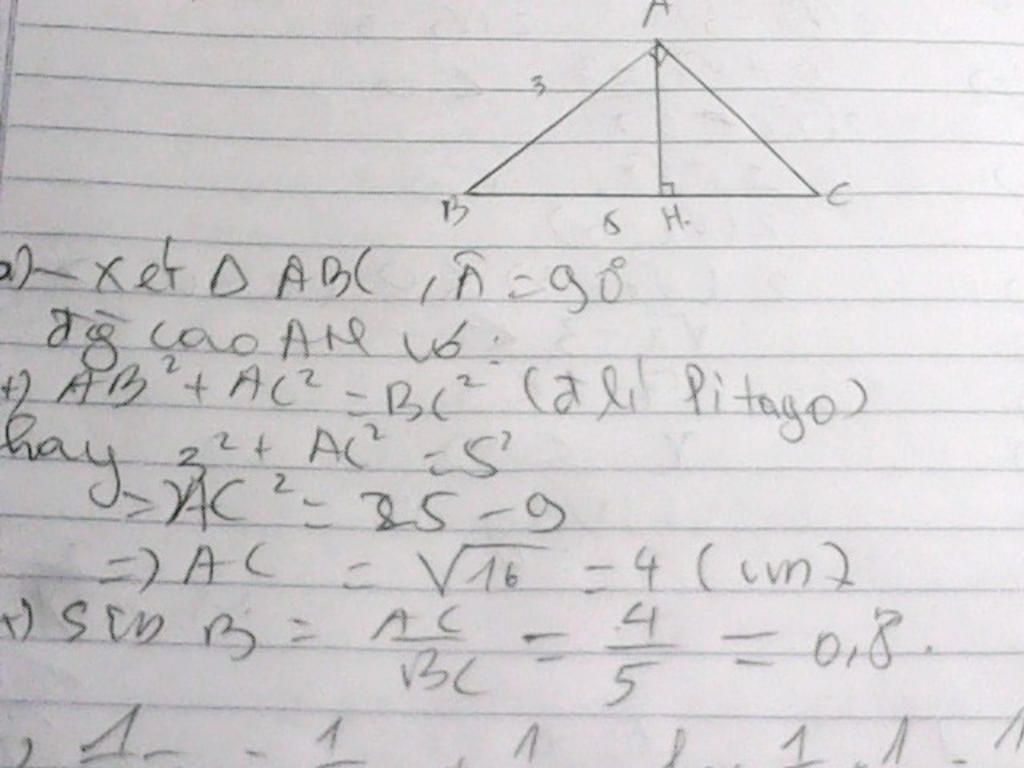 A
3
B 5 H. C
a) - Xét Δ ABC , Â = 90°
đg cao AH có :
+) AB² + AC² = BC² (đ lí Pitago)
hay 3² + AC² = 5²
=> AC² = 25 - 9
=> AC = √16 = 4 (cm)
+) Sin B = AC/BC = 4/5 = 0,8.